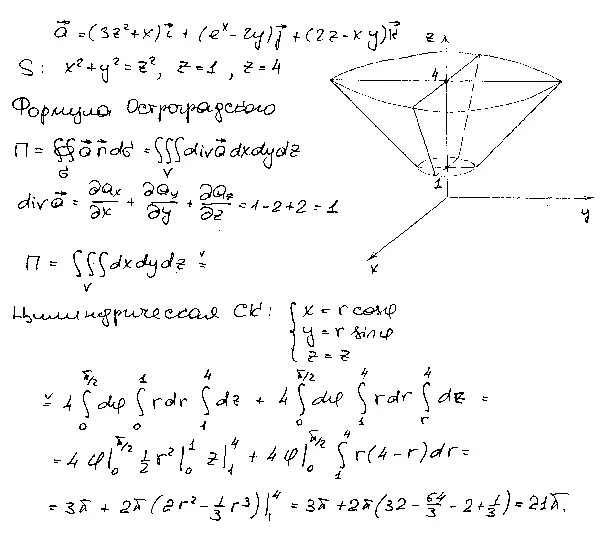 a⃗ = (3z²+x)i⃗ + (eˣ−2y)j⃗ + (2z−xy)k⃗
S: x²+y²=z², z=1, z=4
Формула Остроградского
П = ∯_σ a⃗ n⃗ dσ = ∭_V div a⃗ dxdydz
div a⃗ = ∂aₓ/∂x + ∂a_y/∂y + ∂a_z/∂z = 1−2+2 = 1
П = ∭_V dxdydz =
Цилиндрическая СК: { x = r cosφ
y = r sinφ
z = z
= 4 ∫₀^{π/2} dφ ∫₀¹ r dr ∫₁⁴ dz + 4 ∫₀^{π/2} dφ ∫₁⁴ r dr ∫ᵣ⁴ dz =
= 4 φ|₀^{π/2} ½ r²|₀¹ z|₁⁴ + 4 φ|₀^{π/2} ∫₁⁴ r(4−r) dr =
= 3π + 2π (2r² − ⅓ r³)|₁⁴ = 3π + 2π(32 − 64/3 − 2 + ⅓) = 21π.
z
4
1
y
x